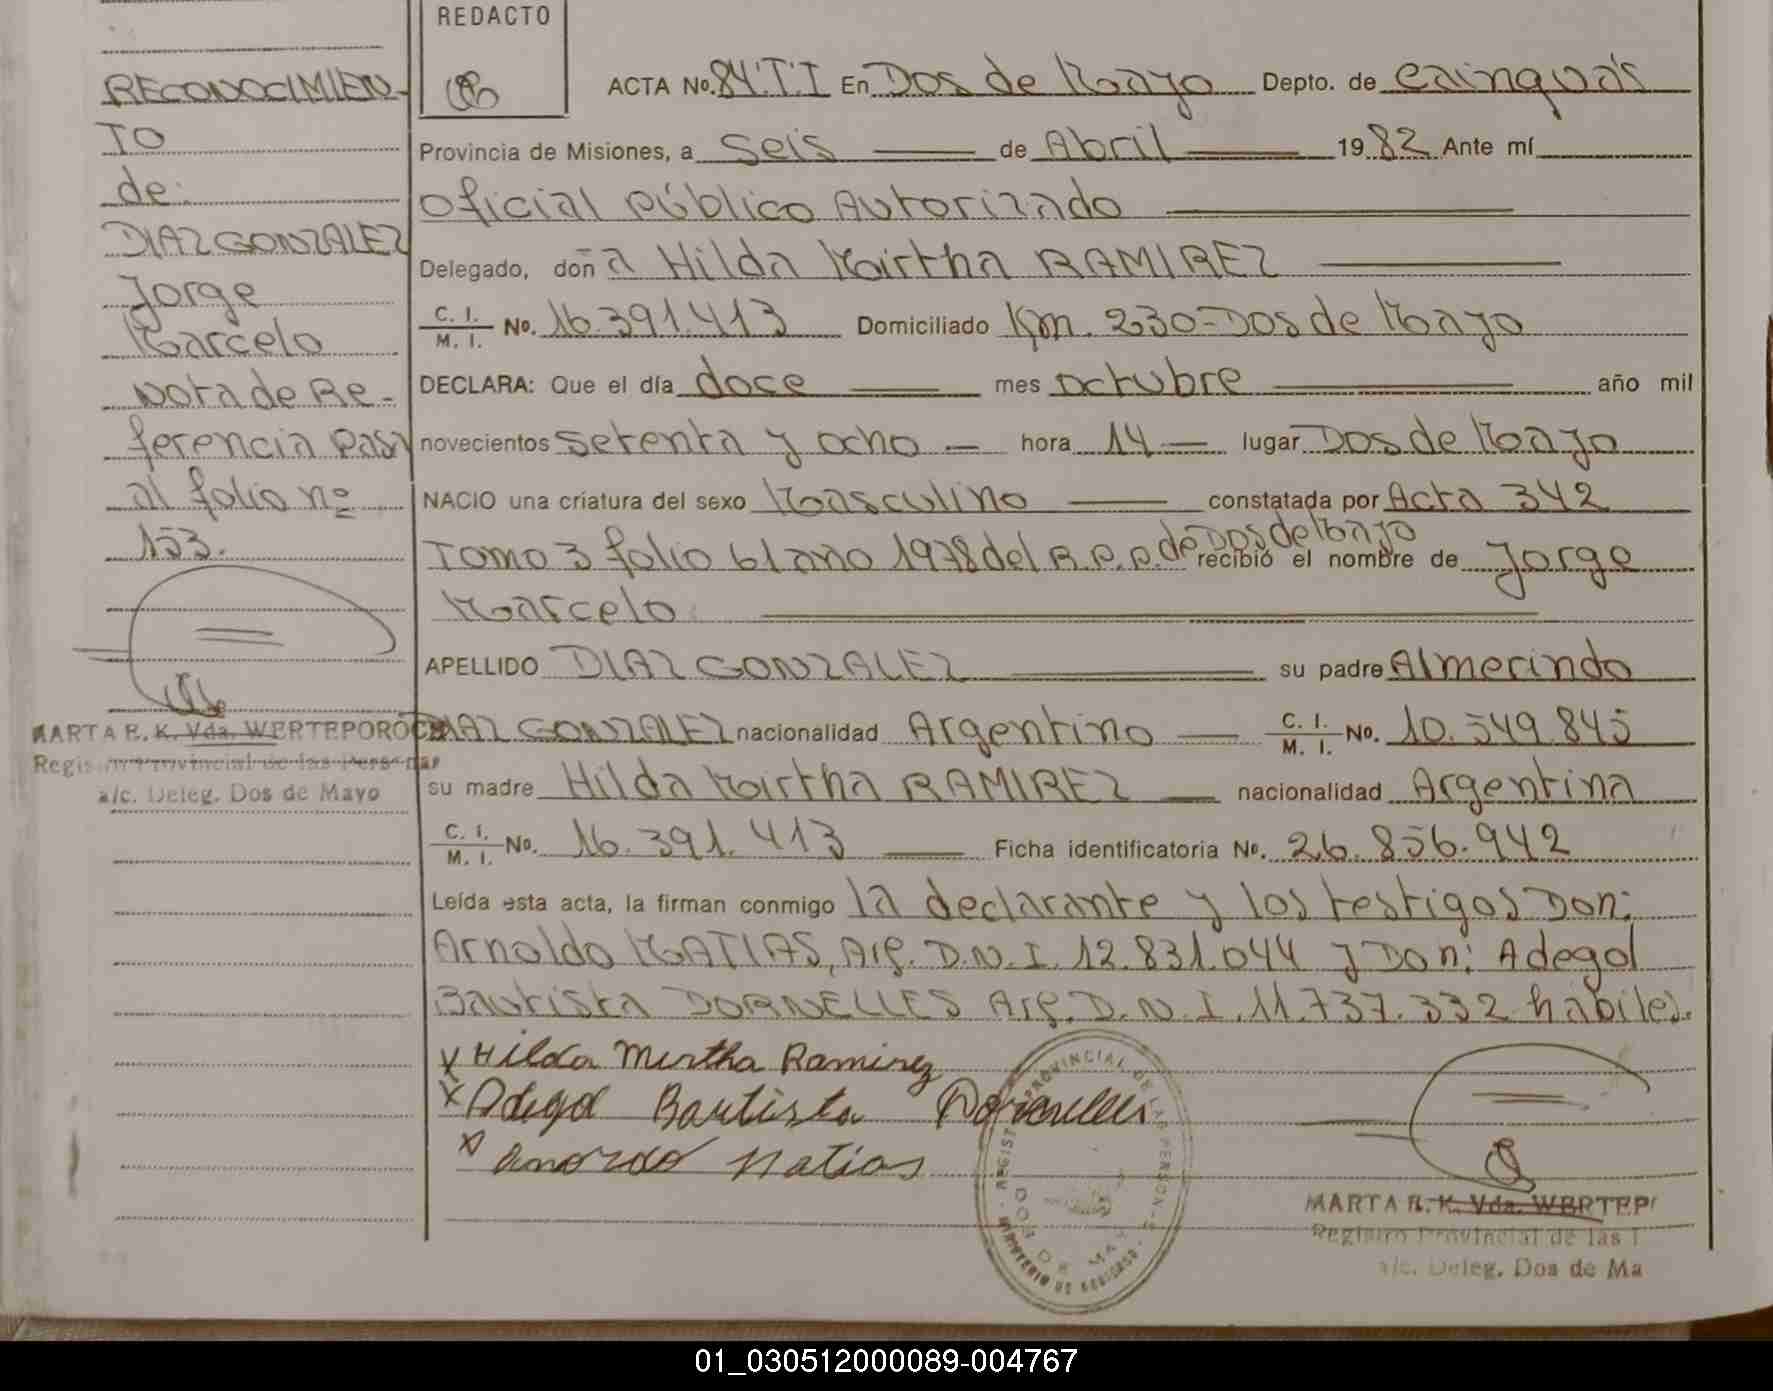 REDACTO
RECONOCIMIEN-
TO
de:
DIAZ GONZALEZ
Jorge
Marcelo
Nota de Re-
ferencia pasa
al folio nº
153.
MARTA R. K. Vda. WERTEPOROC
Registro Provincial de las Personas
a/c. Deleg. Dos de Mayo
ACTA No. 84.T.I En Dos de Mayo Depto. de Cainguás
Provincia de Misiones, a seis de Abril 1982 Ante mí
Oficial Público Autorizado
Delegado, doña Hilda Mirtha RAMIREZ
C. I. / M. I. No. 16.391.413 Domiciliado Km. 230-Dos de Mayo
DECLARA: Que el día doce mes octubre año mil
novecientos setenta y ocho hora 14 lugar Dos de Mayo
NACIO una criatura del sexo Masculino constatada por Acta 342
Tomo 3 folio 61 año 1978 del R.P.P. de Dos de Mayo recibió el nombre de Jorge
Marcelo
APELLIDO DIAZ GONZALEZ su padre Almerindo
DIAZ GONZALEZ nacionalidad Argentino C. I. / M. I. No. 10.549.845
su madre Hilda Mirtha RAMIREZ nacionalidad Argentina
C. I. / M. I. No. 16.391.413 Ficha identificatoria No. 26.856.942
Leída esta acta, la firman conmigo la declarante y los testigos Don:
Arnoldo MATIAS, Arg. D.N.I. 12.831.044 y Don: Adegol
Bautista DORNELLES Arg. D.N.I. 11.737.332 hábiles.
x Hilda Mirtha Ramirez
x Adegol Bautista Dornelles
x Arnoldo Matias
PROVINCIAL DE LAS PERSONAS
DOS DE MAYO
MARTA R. K. Vda. WERTEP
Registro Provincial de las
a/c. Deleg. Dos de Ma
01_030512000089-004767